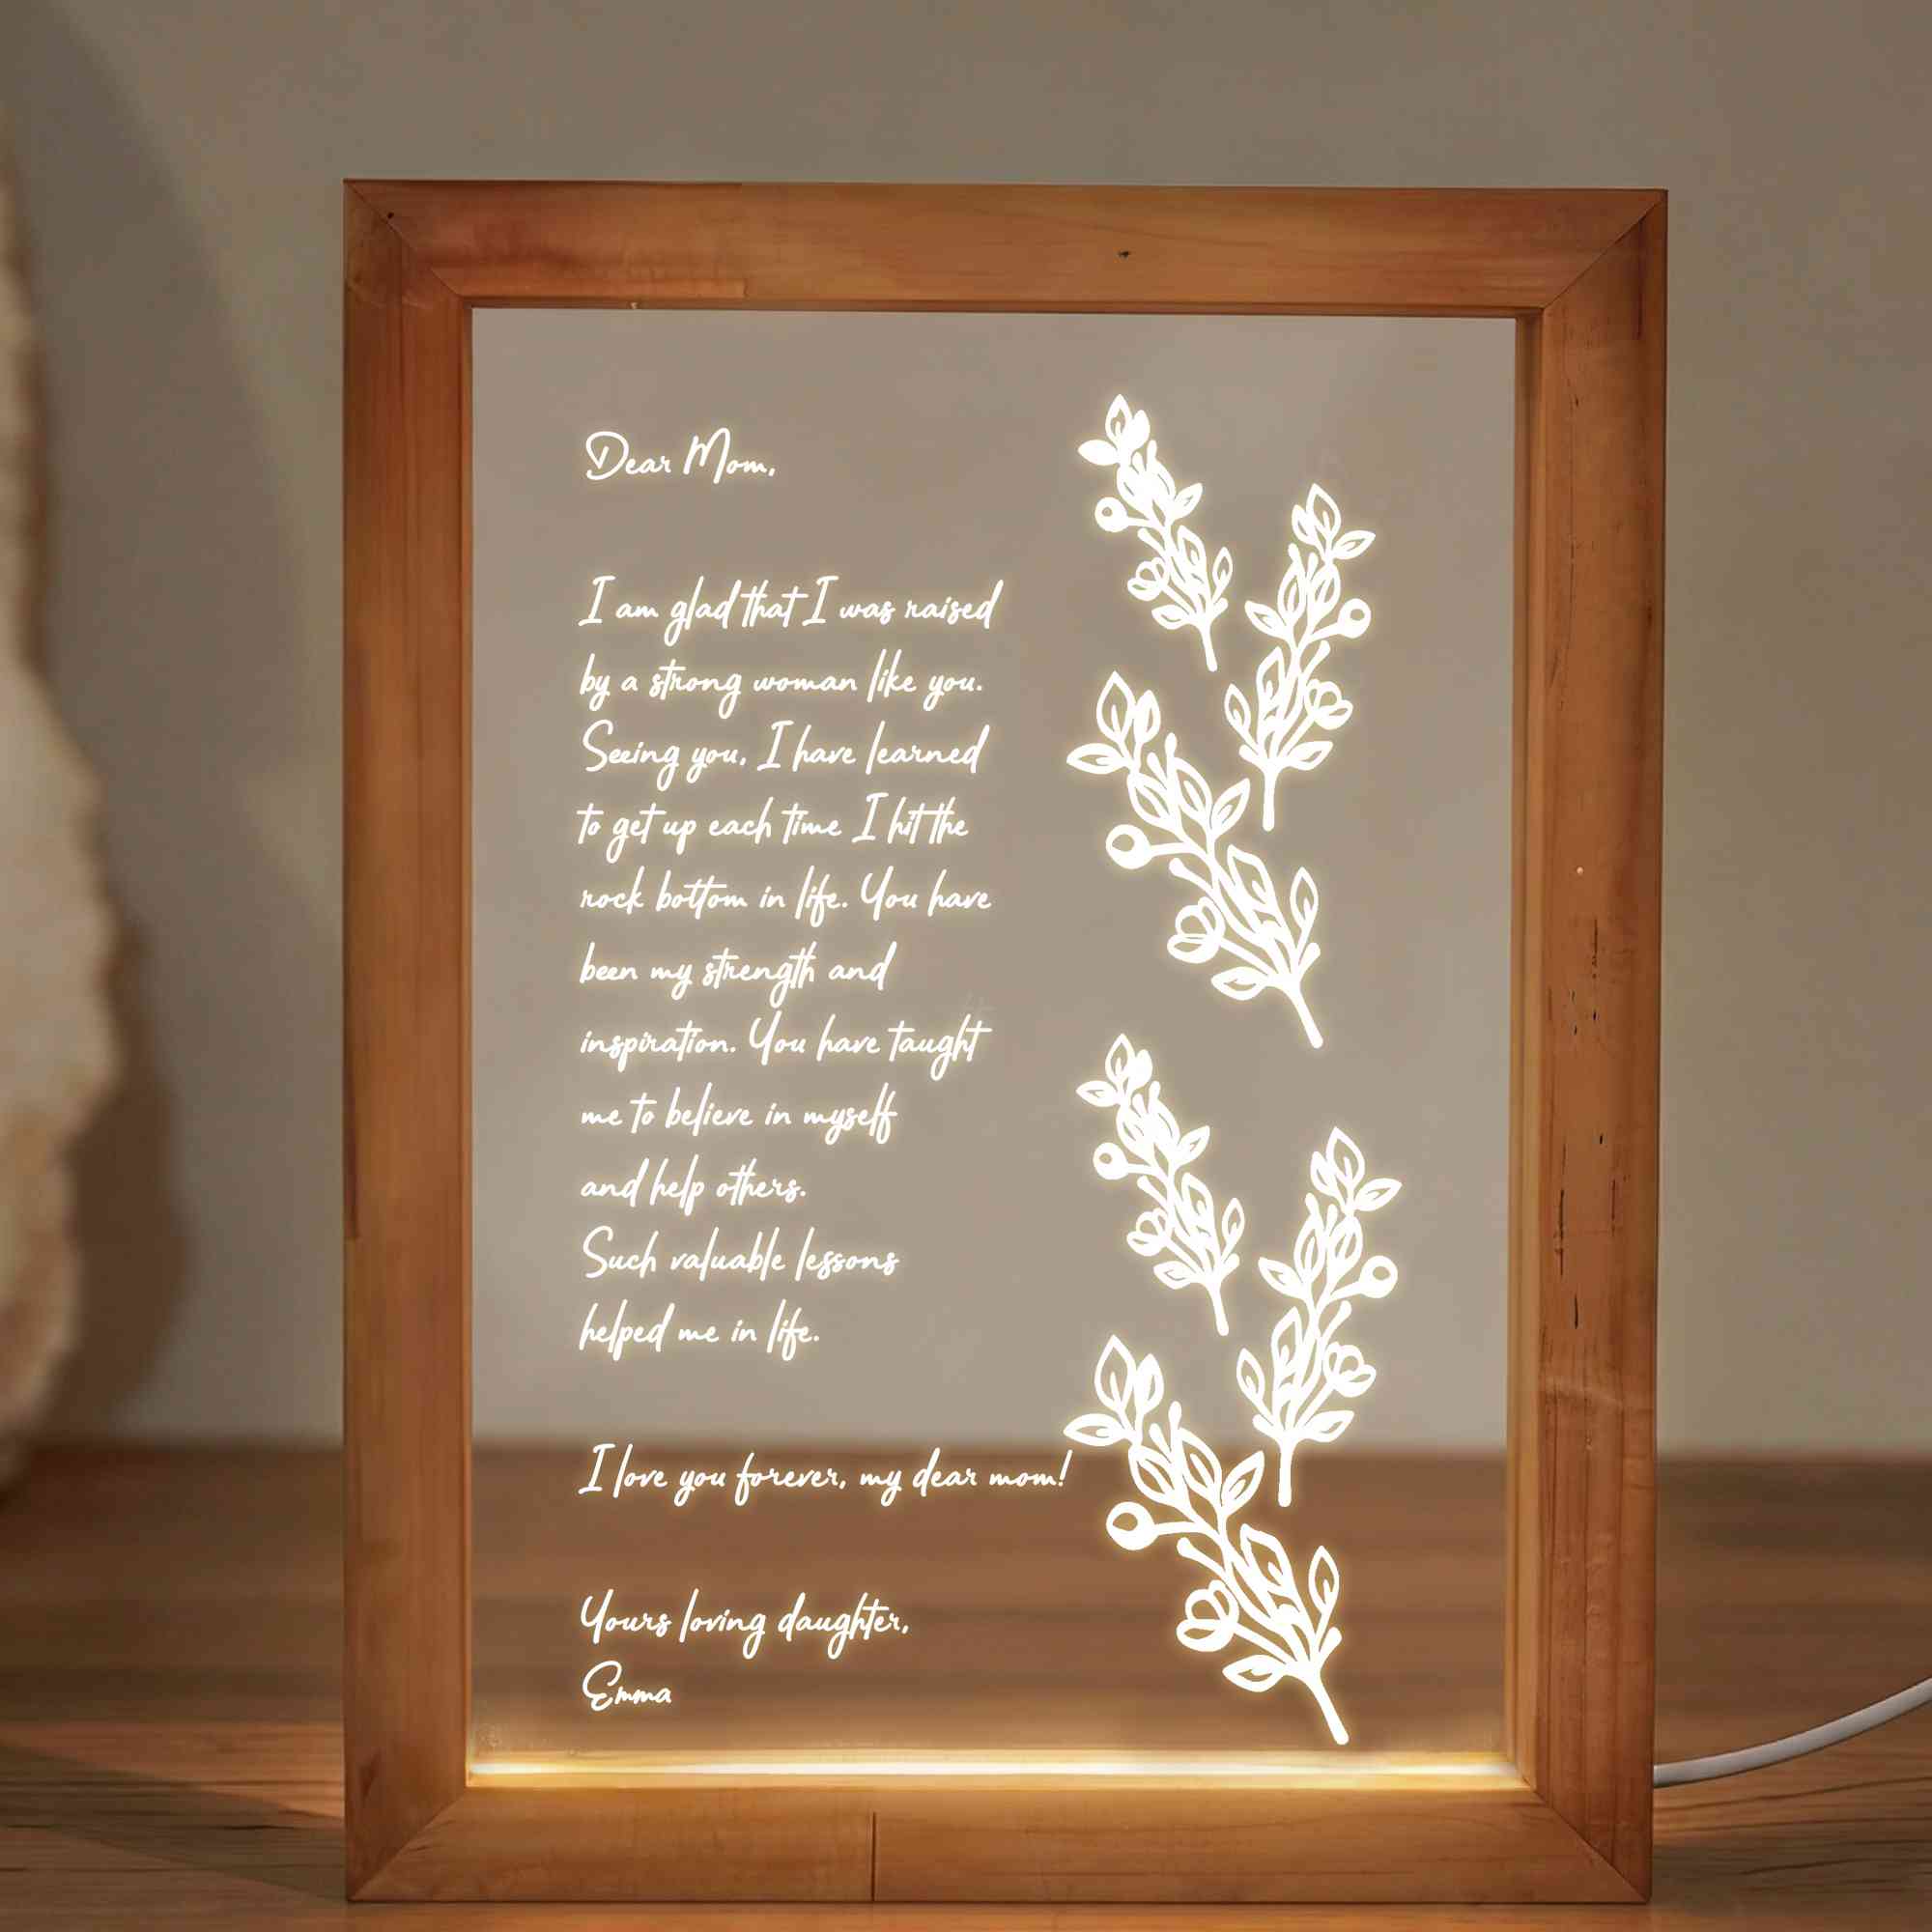 Dear Mom,
I am glad that I was raised
by a strong woman like you.
Seeing you, I have learned
to get up each time I hit the
rock bottom in life. You have
been my strength and
inspiration. You have taught
me to believe in myself
and help others.
Such valuable lessons
helped me in life.
I love you forever, my dear mom!
Yours loving daughter,
Emma